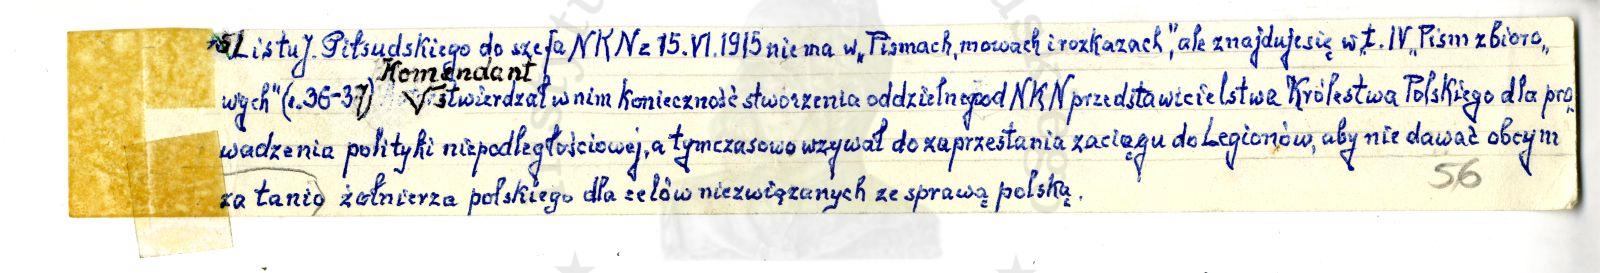 5/ Listu J. Piłsudskiego do szefa NKN z 15.VI.1915 nie ma w „Pismach, mowach i rozkazach”, ale znajduje się w t. IV „Pism zbioro„
Komendant
wych” (s. 36-37) √ stwierdzał w nim konieczność stworzenia oddzielnego od NKN przedstawicielstwa Królestwa Polskiego dla pro„
wadzenia polityki niepodległościowej, a tymczasowo wzywał do zaprzestania zaciągu do Legionów, aby nie dawać obcym
za tanio żołnierza polskiego dla celów niezwiązanych ze sprawą polską.
56